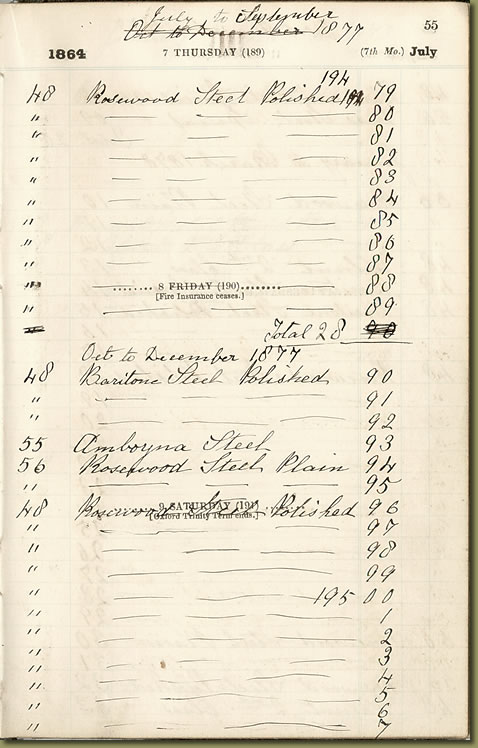 July to September
Oct to December 1877
55
1864 7 THURSDAY (189) (7th Mo.) July
194
48 Rosewood Steel Polished 194 79
" — — — — 80
" — — — — 81
" — — — — 82
" — — — — 83
" — — — — 84
" — — — — 85
" — — — — 86
" — — — — 87
" ........ 8 FRIDAY (190)........ 88
[Fire Insurance ceases.]
" — — — — 89
Total 28 90
Oct to December 1877
48 Baritone Steel Polished 90
" — — — 91
" — — — 92
55 Amboyna Steel 93
56 Rosewood Steel Plain 94
" — — — 95
9 SATURDAY (191)
48 Rosewood Steel Polished 96
[Oxford Trinity Term ends.]
" — — — 97
" — — — 98
" — — — 99
" — — — 195 00
" — — — 1
" — — — 2
" — — — 3
" — — — 4
" — — — 5
" — — — 6
" — — — 7